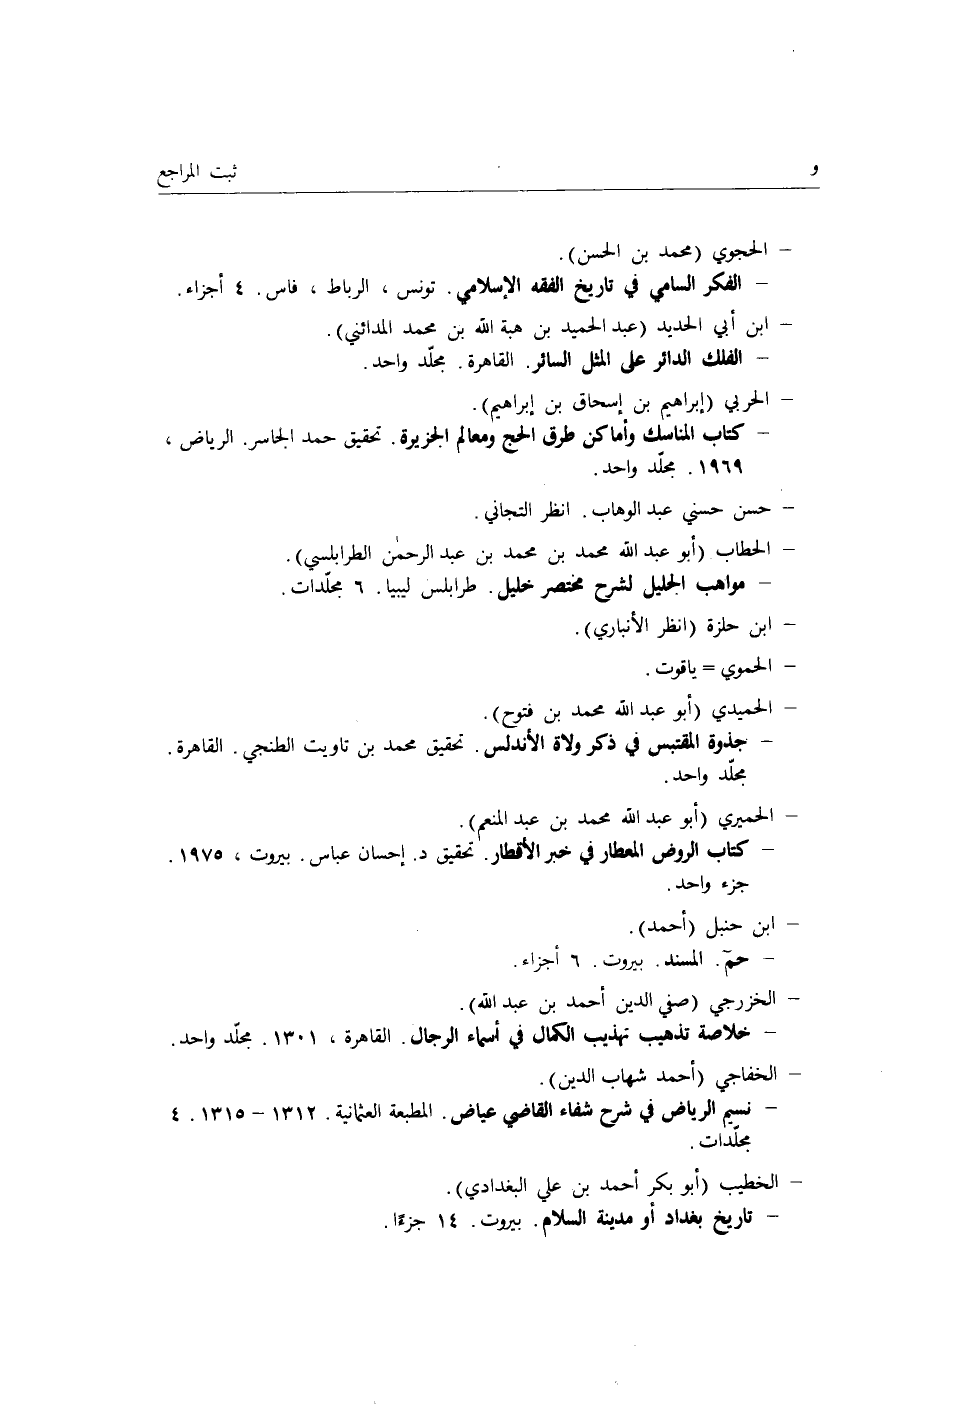 و
ثبت المراجع
– الحجوي (محمد بن الحسن).
– الفكر السامي في تاريخ الفقه الإسلامي. تونس ، الرباط ، فاس. ٤ أجزاء.
– ابن أبي الحديد (عبد الحميد بن هبة الله بن محمد المدائني).
– الفلك الدائر على المثل السائر. القاهرة. مجلّد واحد.
– الحربي (إبراهيم بن إسحاق بن إبراهيم).
– كتاب المناسك وأماكن طرق الحج ومعالم الجزيرة. تحقيق حمد الجاسر. الرياض ،
١٩٦٩. مجلّد واحد.
– حسن حسني عبد الوهاب. انظر التجاني.
– الحطاب (أبو عبد الله محمد بن محمد بن عبد الرحمٰن الطرابلسي).
– مواهب الجليل لشرح مختصر خليل. طرابلس ليبيا. ٦ مجلّدات.
– ابن حلزة (انظر الأنباري).
– الحموي = ياقوت.
– الحميدي (أبو عبد الله محمد بن فتوح).
– جذوة المقتبس في ذكر ولاة الأندلس. تحقيق محمد بن تاويت الطنجي. القاهرة.
مجلّد واحد.
– الحميري (أبو عبد الله محمد بن عبد المنعم).
– كتاب الروض المعطار في خبر الأقطار. تحقيق د. إحسان عباس. بيروت ، ١٩٧٥.
جزء واحد.
– ابن حنبل (أحمد).
– حمۤ. المسند. بيروت. ٦ أجزاء.
– الخزرجي (صفي الدين أحمد بن عبد الله).
– خلاصة تذهيب تهذيب الكمال في أسماء الرجال. القاهرة ، ١٣٠١. مجلّد واحد.
– الخفاجي (أحمد شهاب الدين).
– نسيم الرياض في شرح شفاء القاضي عياض. المطبعة العثمانية. ١٣١٢ – ١٣١٥. ٤
مجلّدات.
– الخطيب (أبو بكر أحمد بن علي البغدادي).
– تاريخ بغداد أو مدينة السلام. بيروت. ١٤ جزءًا.